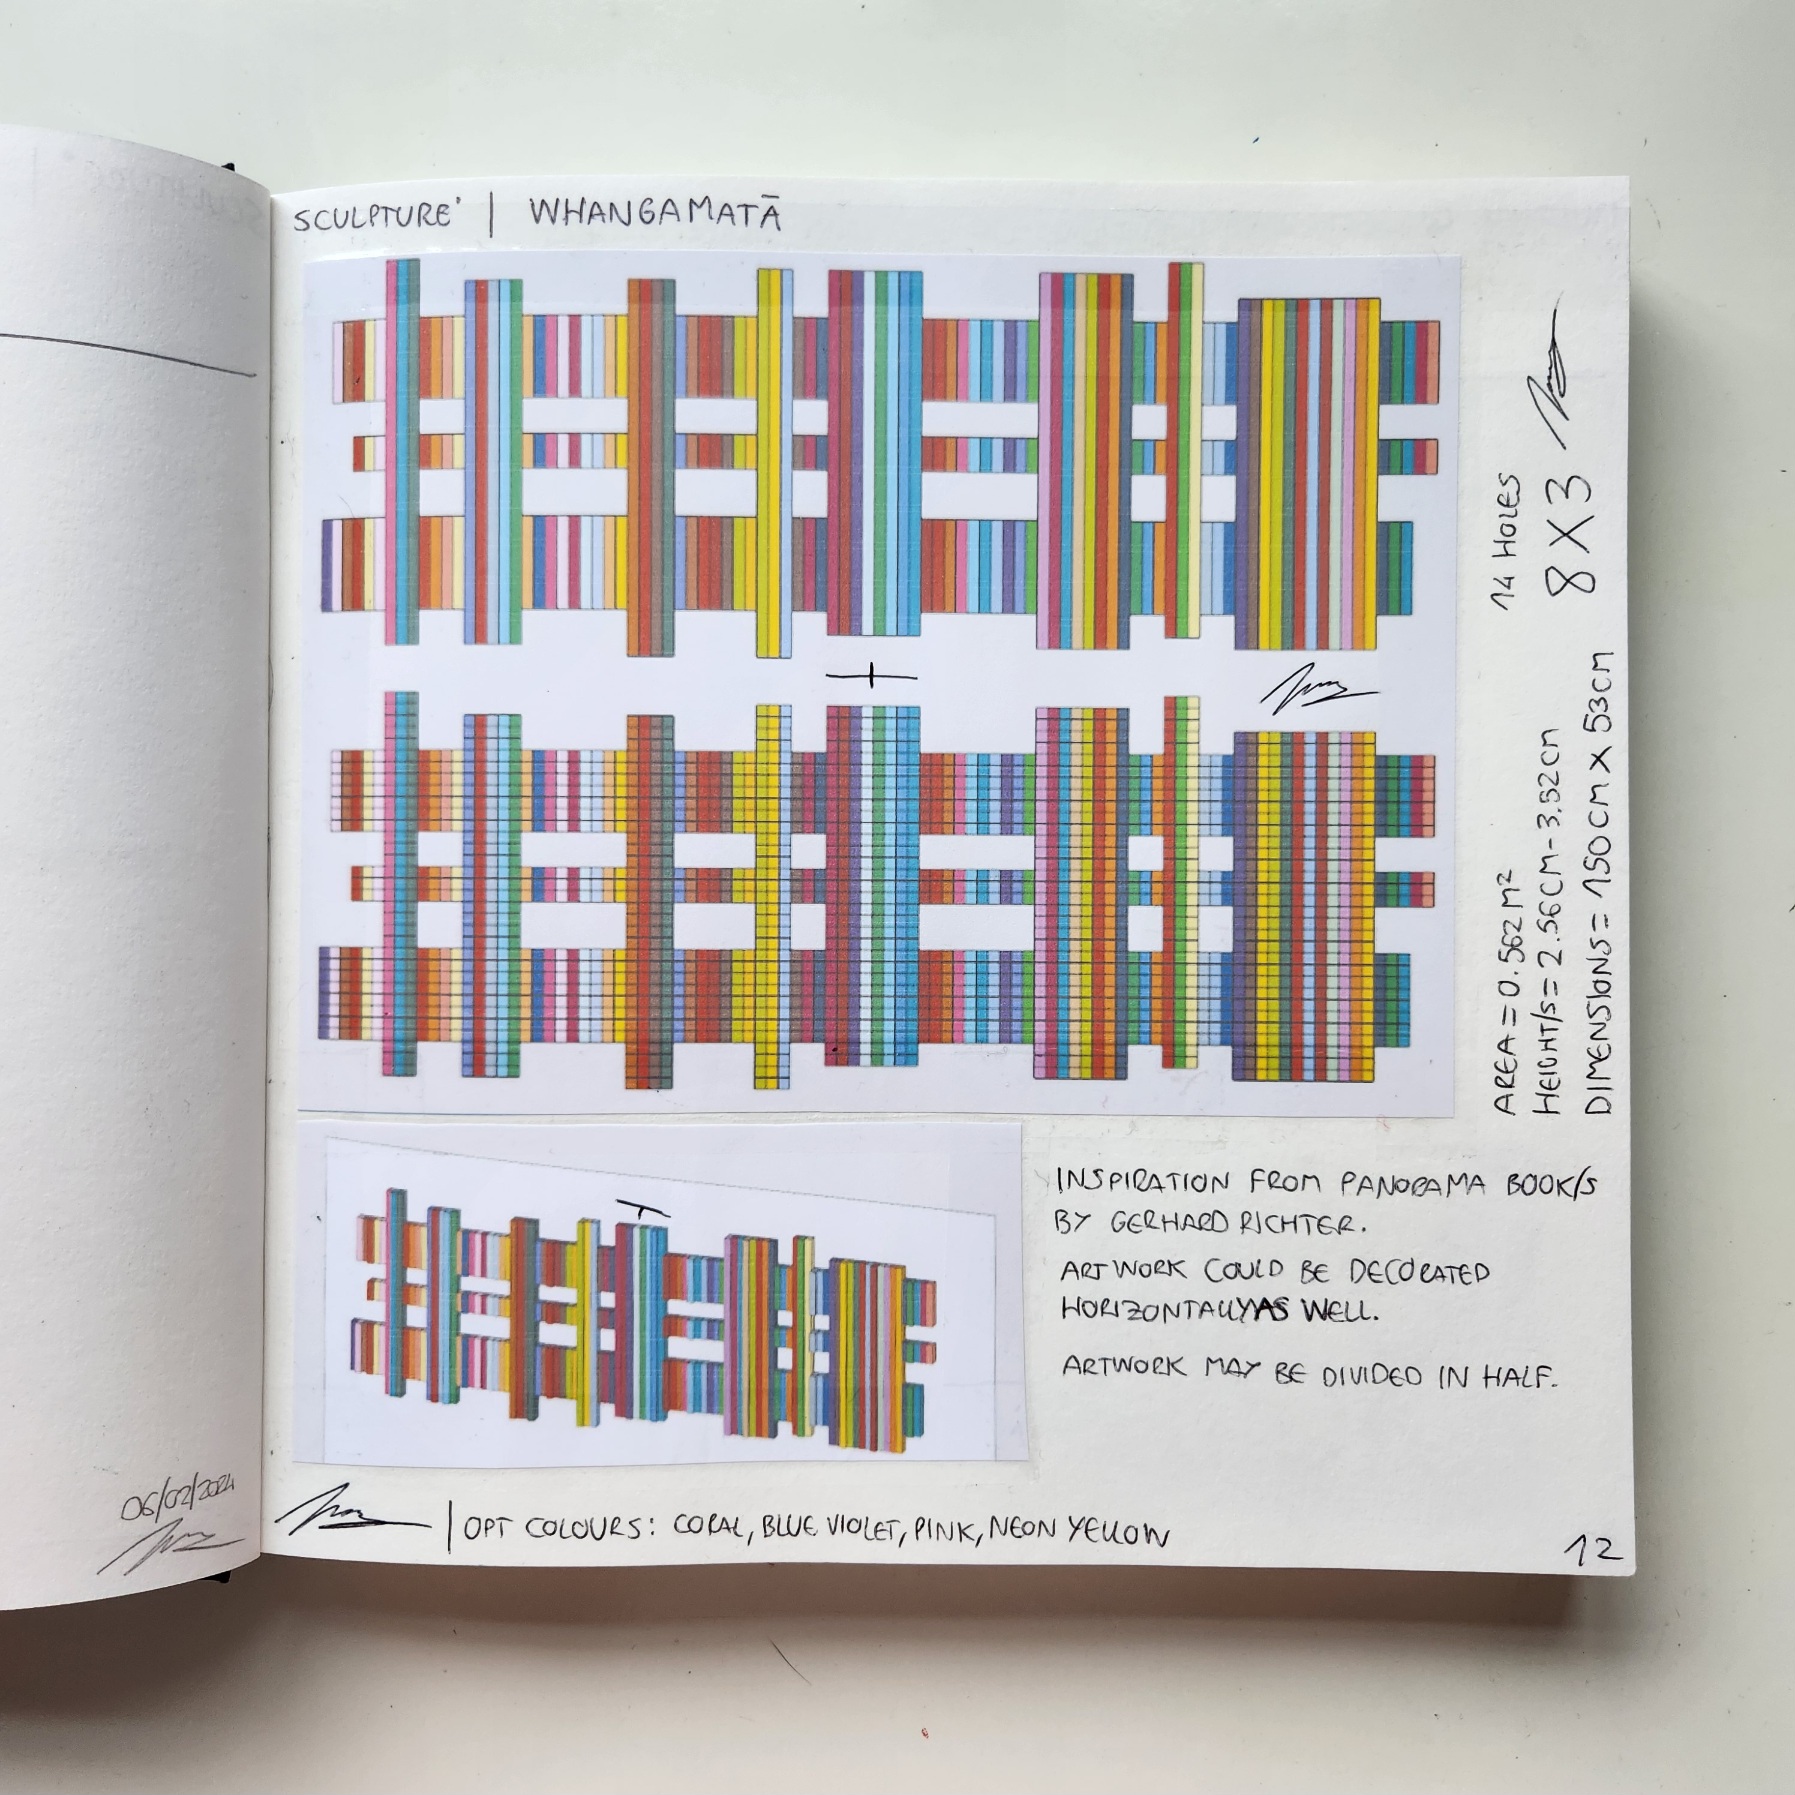 SCULPTURE' | WHANGAMATĀ
14 HOLES
8 X 3
AREA = 0.562 M²
HEIGHT/S = 2.56CM - 3.52CM
DIMENSIONS = 150CM X 53CM
INSPIRATION FROM PANORAMA BOOK/S
BY GERHARD RICHTER.
ARTWORK COULD BE DECORATED
HORIZONTALLY AS WELL.
ARTWORK MAY BE DIVIDED IN HALF.
| OPT COLOURS: CORAL, BLUE VIOLET, PINK, NEON YELLOW
12
06/02/2024